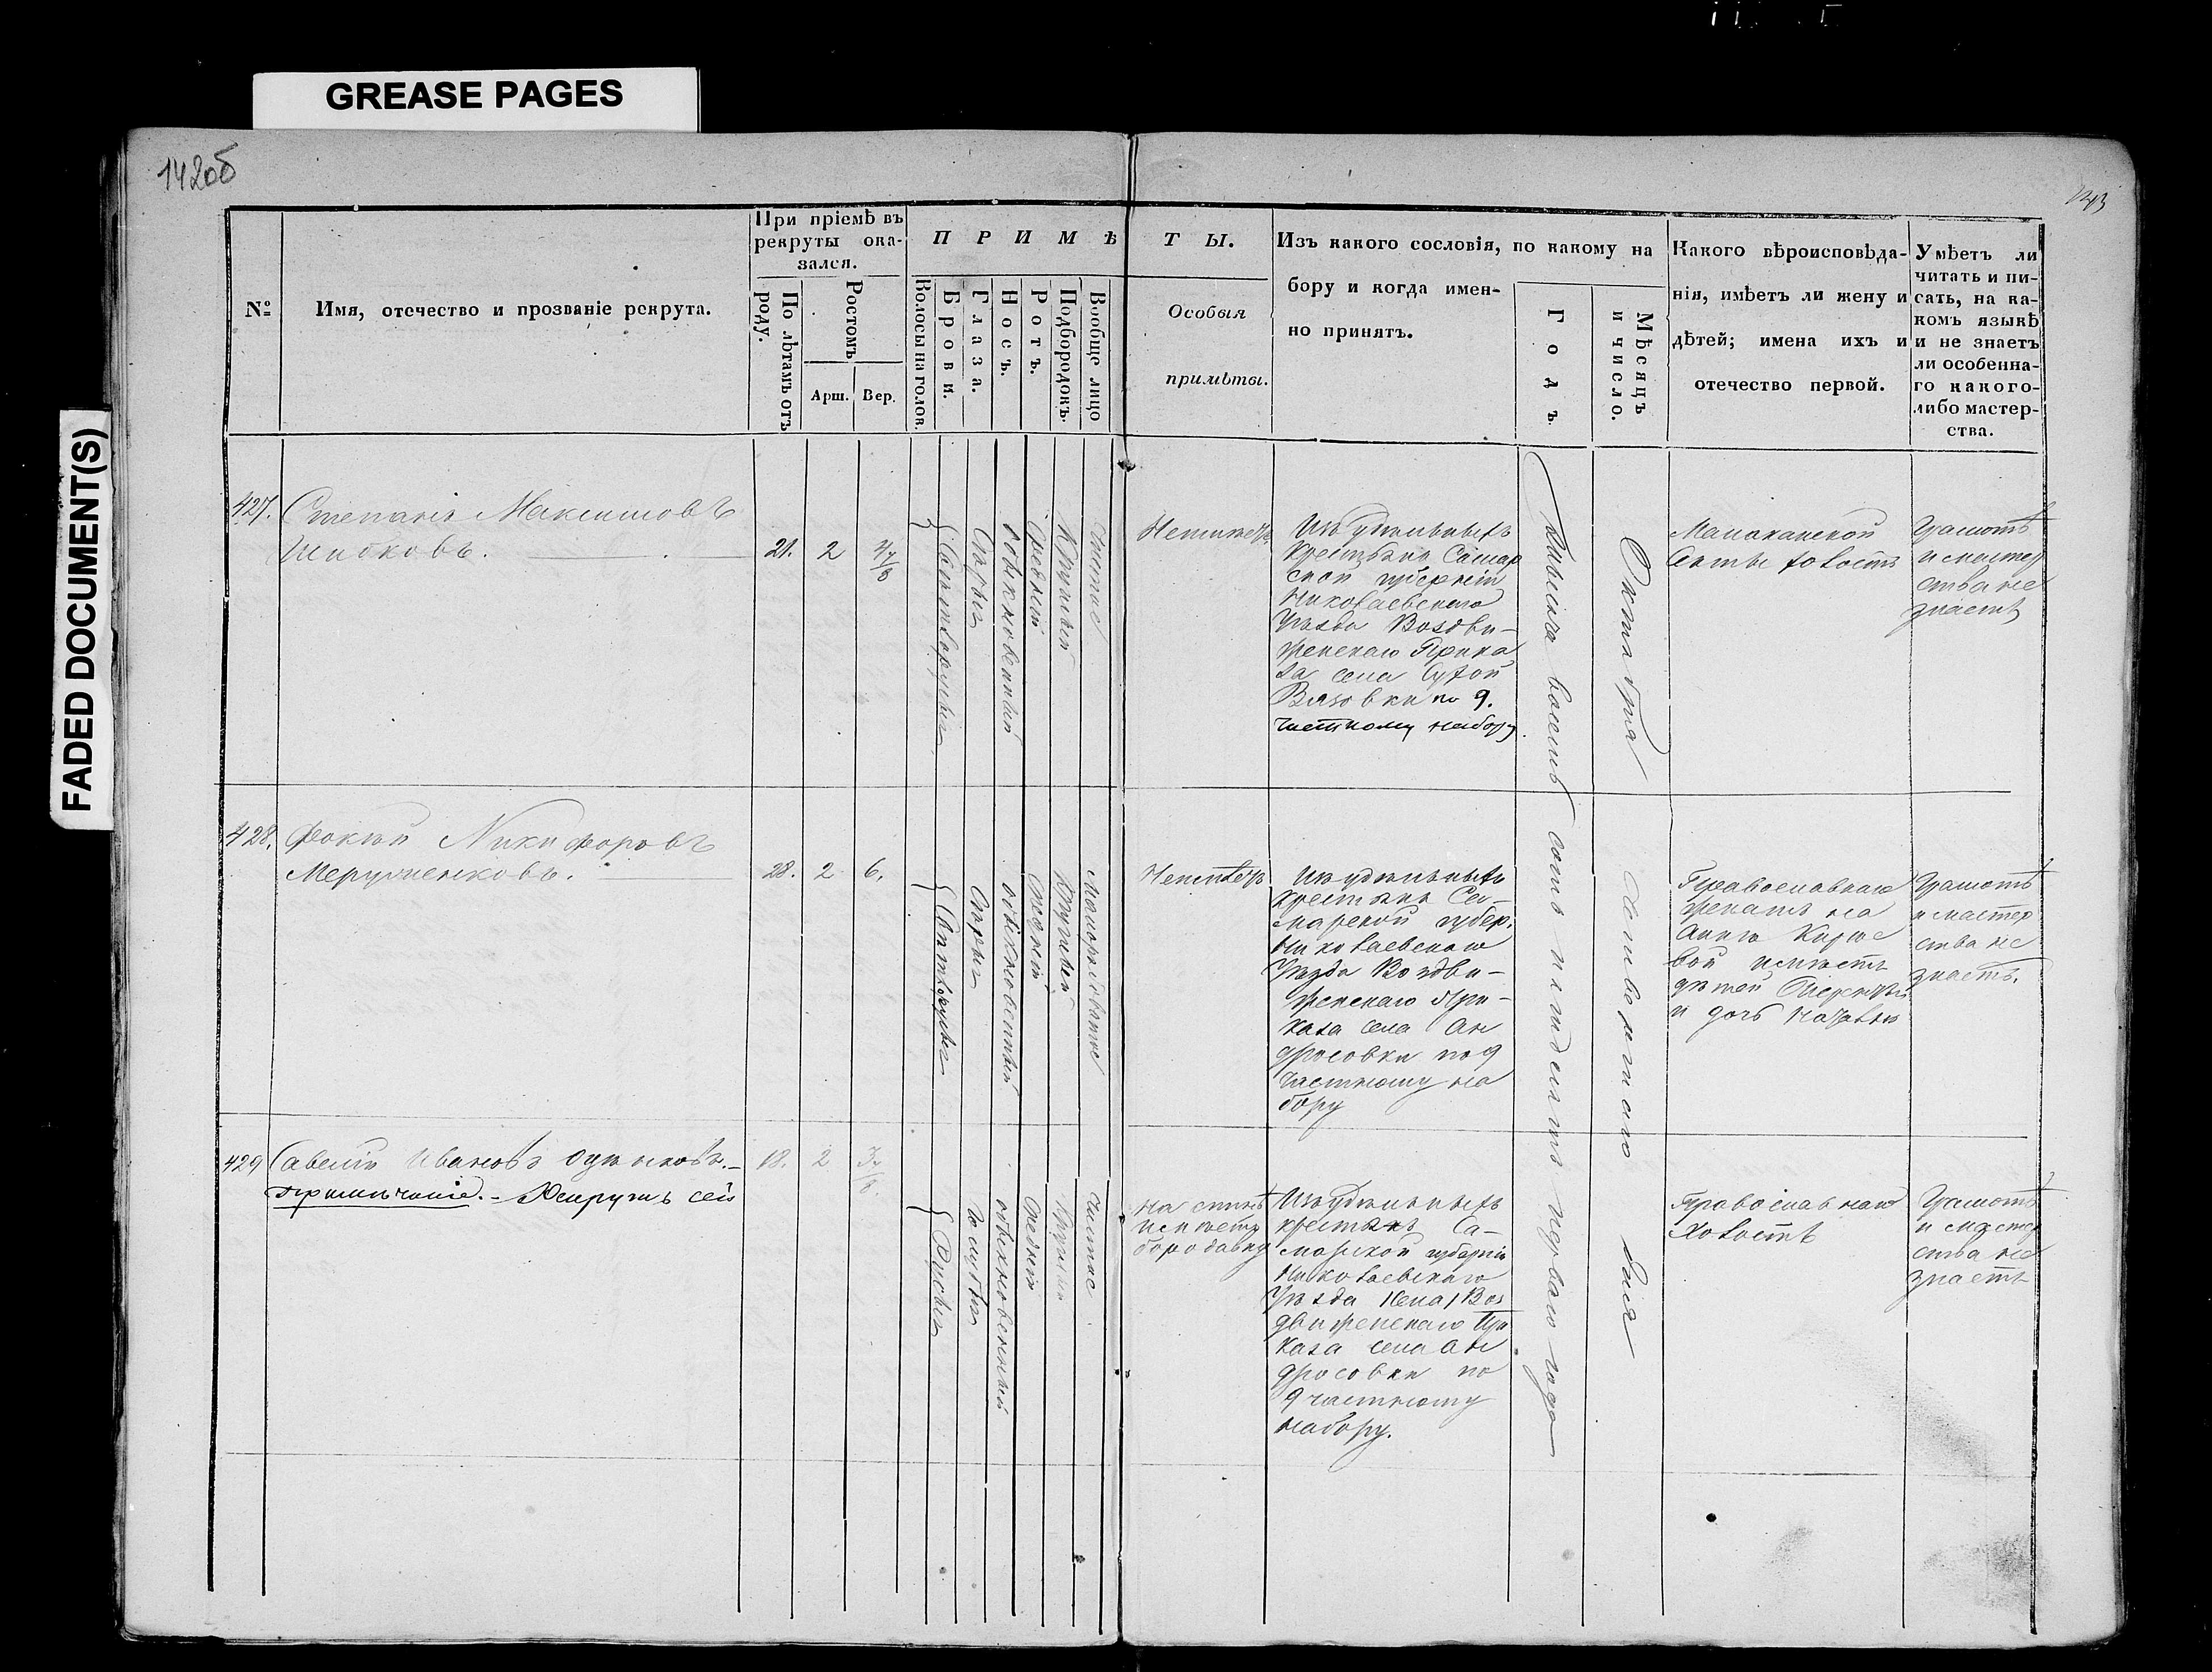 GREASE PAGES
FADED DOCUMENT(S)
142об
143
№
Имя, отечество и прозваніе рекрута.
При пріемѣ въ
рекруты ока-
зался.
По лѣтамъ отъ
роду.
Ростомъ
Арш.
Вер.
ПРИМѢ
ТЫ.
Волосы на голов.
Брови.
Глаза.
Носъ.
Ротъ.
Подбородокъ.
Вообще лицо
Особыя
примѣты.
Изъ какого сословія, по какому на
бору и когда имен-
но принятъ.
Годъ
Мѣсяцъ
и число.
Какого вѣроисповѣда-
нія, имѣетъ ли жену и
дѣтей; имена ихъ и
отечество первой.
Умѣетъ ли
читать и пи-
сать, на ка-
комъ языкѣ
и не знаетъ
ли особенна-
го какого-
либо мастер-
ства.
427.
Степанъ Максимовъ
Шибковъ.
21.
2
4 7/8
Свѣтлорусыя
Сѣрыя
обыкновенный
средній
Круглый
Чистое
Неимѣетъ
Изъ удѣльныхъ
крестьянъ Самар
ской губерніи
Николаевскаго
Уѣзда Воздви-
женскаго Прика
за села Сухой
Вязовки по 9.
частному набору.
Тысяча восемь сотъ пятьдесятъ перваго года
Октября
Малоканской
Секты холостъ
Грамотѣ
и мастер
ства не
знаетъ
428.
Фокѣй Никифоровъ
28.
2
6.
Свѣтлорусыя
Сѣрыя
обыкновенный
средній
Круглый
Неимѣетъ
Изъ удѣльныхъ
крестьянъ Са-
марской губер.
Николаевскаго
Уѣзда Воздви-
женскаго При-
каза села Ан
дросовки по 9
частному на
бору
дня
Православнаго
женатъ на
Аннѣ
вой имѣетъ
дѣтей
и дочь
Грамотѣ
и мастер
ства не
знаетъ.
429
Савелій Ивановъ
примѣчаніе. - Рекрутъ сей
18.
2
3 7/8.
Русыя
голубыя
обыкновенный
средній
Круглый
Чистое
На спинѣ
имѣетъ
бородавку
Изъ удѣльныхъ
крестьянъ Са-
марской губерніи
Николаевскаго
Уѣзда Воз
движенскаго При
каза села Ан
дросовки по
9 частному
набору.
Православнаго
Холостъ
Грамотѣ
и мастер
ства не
знаетъ